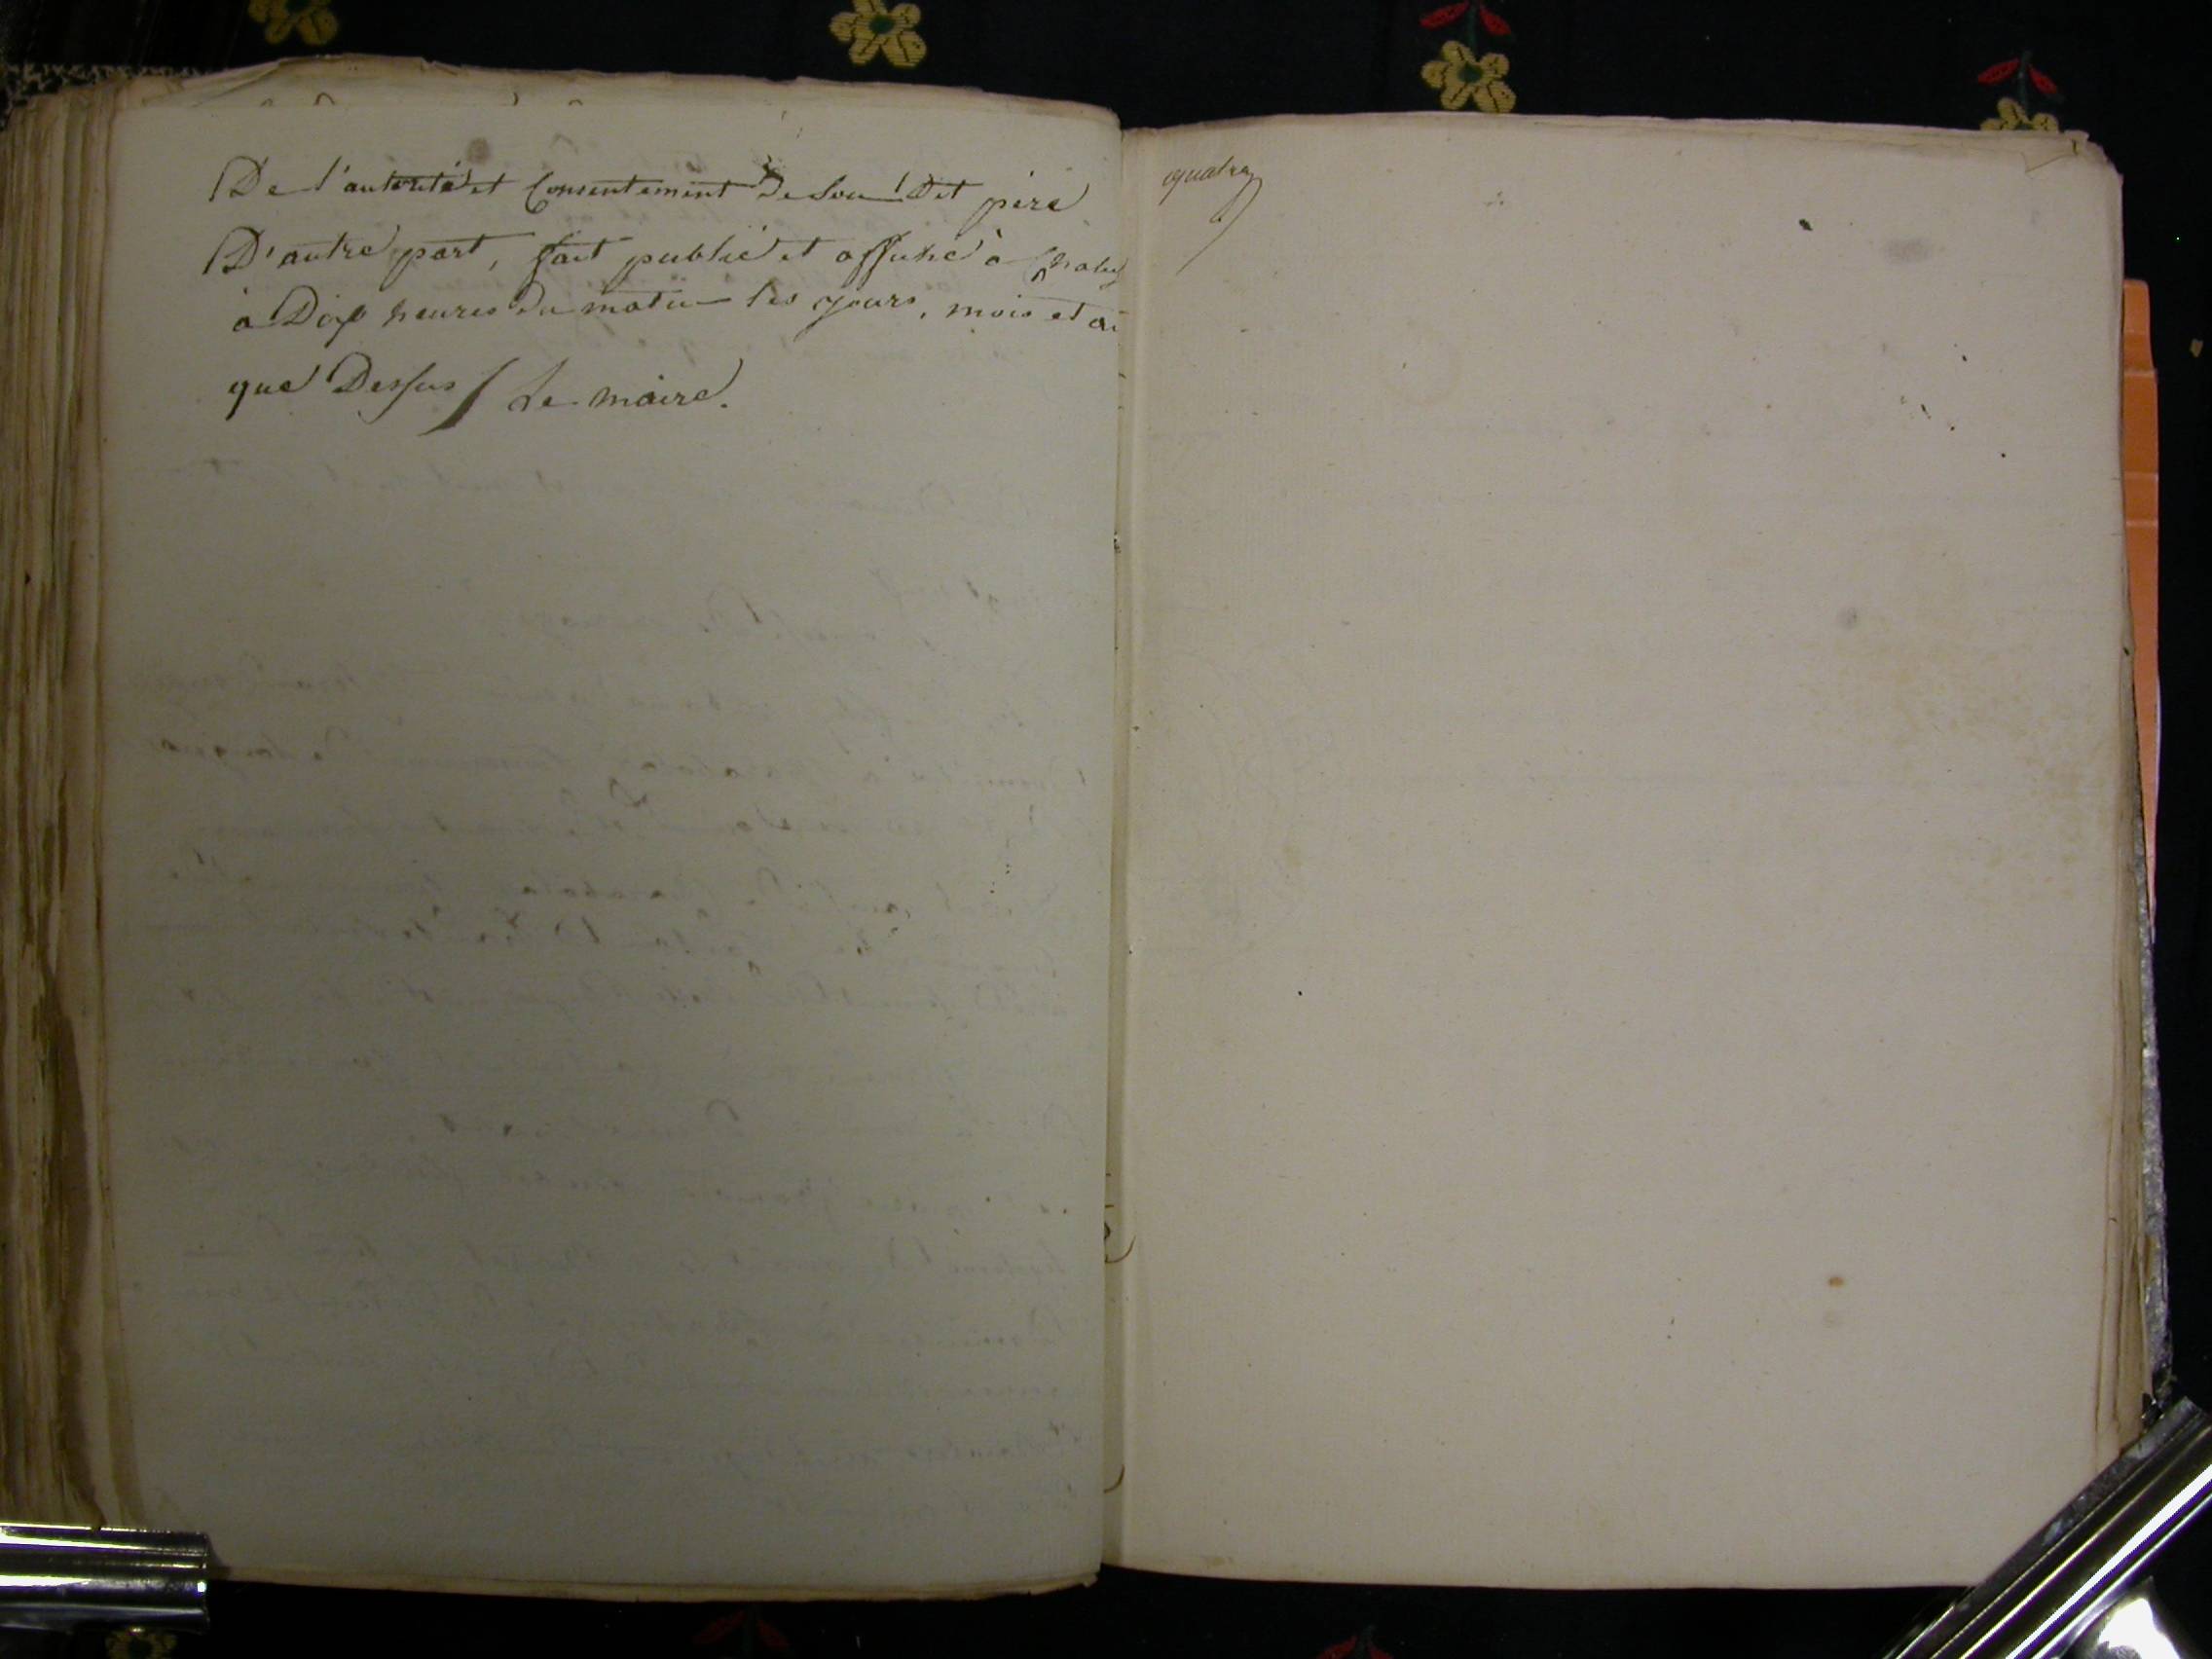 De l'autorité et Consentement de son Dit père
D'autre part, fait publié et affiché à
à Dix heures du matin les jours, mois et an
que Dessus / Le maire.
quatre